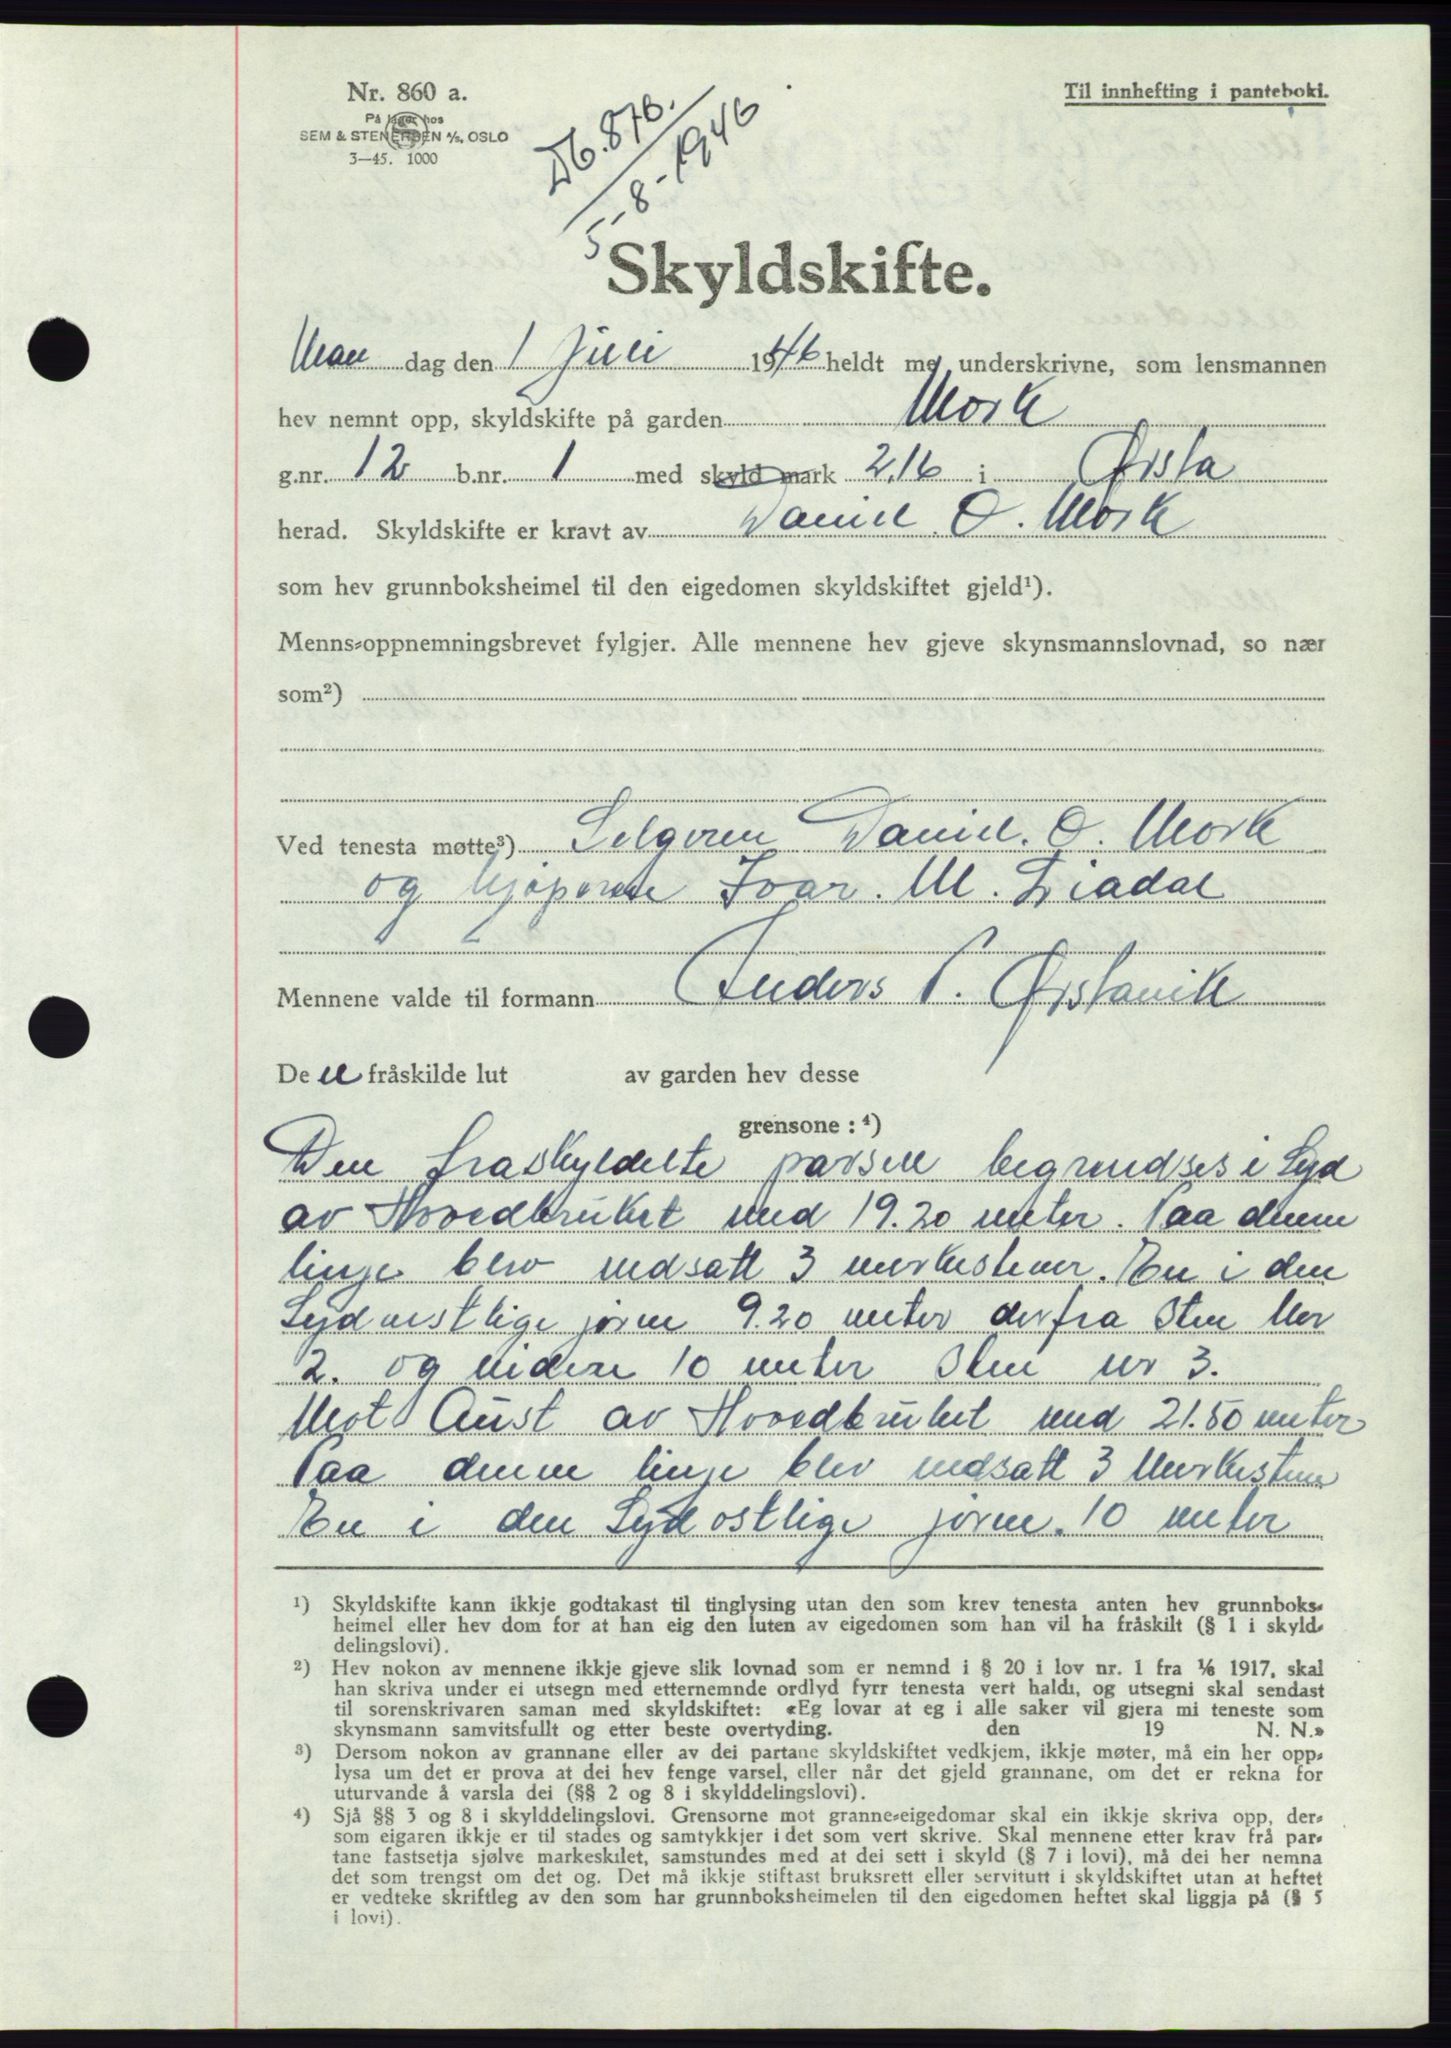 Nr. 860 a.
Til innhefting i panteboki.
På lager hos
SEM & STENERSEN A/S, OSLO
3—45. 1000
Db. 876.
5-8-1946
Skyldskifte.
Man dag den 1 Juli 1946 heldt me underskrivne, som lensmannen
hev nemnt opp, skyldskifte på garden Mork
g.nr. 12 b.nr. 1 med skyld mark 2,16 i Ørsta
herad. Skyldskifte er kravt av Daniel O. Mork
som hev grunnboksheimel til den eigedomen skyldskiftet gjeld¹).
Menns-oppnemningsbrevet fylgjer. Alle mennene hev gjeve skynsmannslovnad, so nær
som²)
Ved tenesta møtte³) Selgeren Daniel. O. Mork
og kjøperen Ivar. M. Liadal
Mennene valde til formann Anders P. Ørstavik
De n fråskilde lut av garden hev desse
grensone : ⁴)
Den fraskyldelte parsell begrendses i Syd
av Hovedbruket med 19.20 meter. Paa denne
linje blev nedsatt 3 merkestener. En i den
Sydvestlige jørne 9.20 meter derfra Sten Nor
2. og videre 10 meter Sten nr 3.
Mot Aust av Hovedbruket med 21.50 meter
Paa denne linje blev nedsatt 3 Merkestene
En i den Sydostlige jørne. 10 meter
¹) Skyldskifte kann ikkje godtakast til tinglysing utan den som krev tenesta anten hev grunnboks-
heimel eller hev dom for at han eig den luten av eigedomen som han vil ha fråskilt (§ 1 i skyld-
delingslovi).
²) Hev nokon av mennene ikkje gjeve slik lovnad som er nemnd i § 20 i lov nr. 1 fra 1/6 1917, skal
han skriva under ei utsegn med etternemnde ordlyd fyrr tenesta vert haldi, og utsegni skal sendast
til sorenskrivaren saman med skyldskiftet: «Eg lovar at eg i alle saker vil gjera mi teneste som
skynsmann samvitsfullt og etter beste overtyding. den 19 N. N.»
³) Dersom nokon av grannane eller av dei partane skyldskiftet vedkjem, ikkje møter, må ein her opp-
lysa um det er prova at dei hev fenge varsel, eller når det gjeld grannane, om det er rekna for
uturvande å varsla dei (§§ 2 og 8 i skylddelingslovi).
⁴) Sjå §§ 3 og 8 i skylddelingslovi. Grensorne mot granne-eigedomar skal ein ikkje skriva opp, der-
som eigaren ikkje er til stades og samtykkjer i det som vert skrive. Skal mennene etter krav frå par-
tane fastsetja sjølve markeskilet, samstundes med at dei sett i skyld (§ 7 i lovi), må dei her nemna
det som trengst om det og. Det må ikkje stiftast bruksrett eller servitutt i skyldskiftet utan at heftet
er vedteke skriftleg av den som har grunnboksheimelen til den eigedomen heftet skal liggja på (§ 5
i lovi).